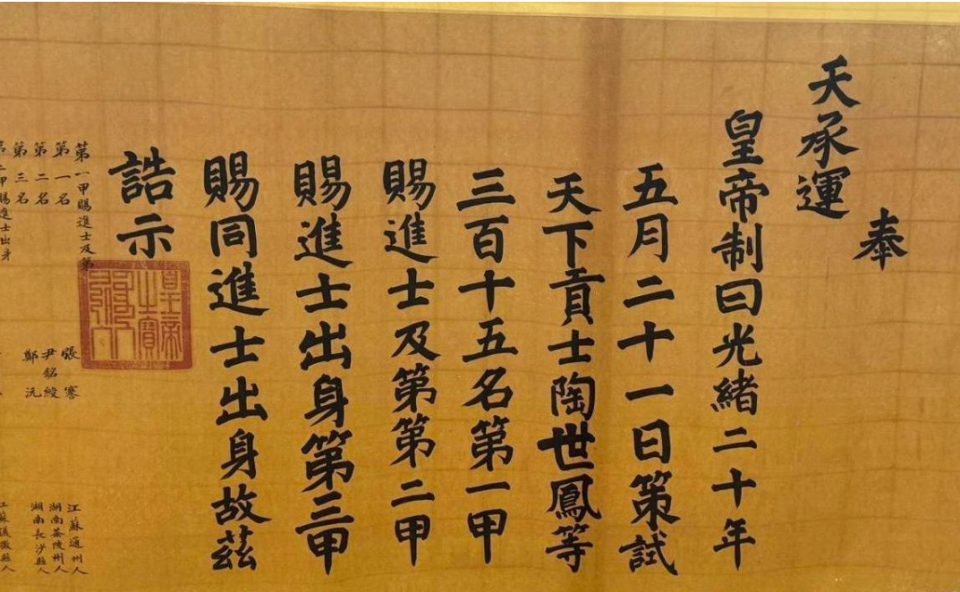 奉
天承運
皇帝制曰光緒二十年
五月二十一日策試
天下貢士陶世鳳等
三百十五名第一甲
賜進士及第第二甲
賜進士出身第三甲
賜同進士出身故茲
誥示
皇帝之寶
第一甲賜進士及第
第一名 張謇 江蘇通州人
第二名 尹銘綬 湖南茶陵州人
第三名 鄭沅 湖南長沙縣人
第二甲賜進士出身
江蘇儀徵縣人